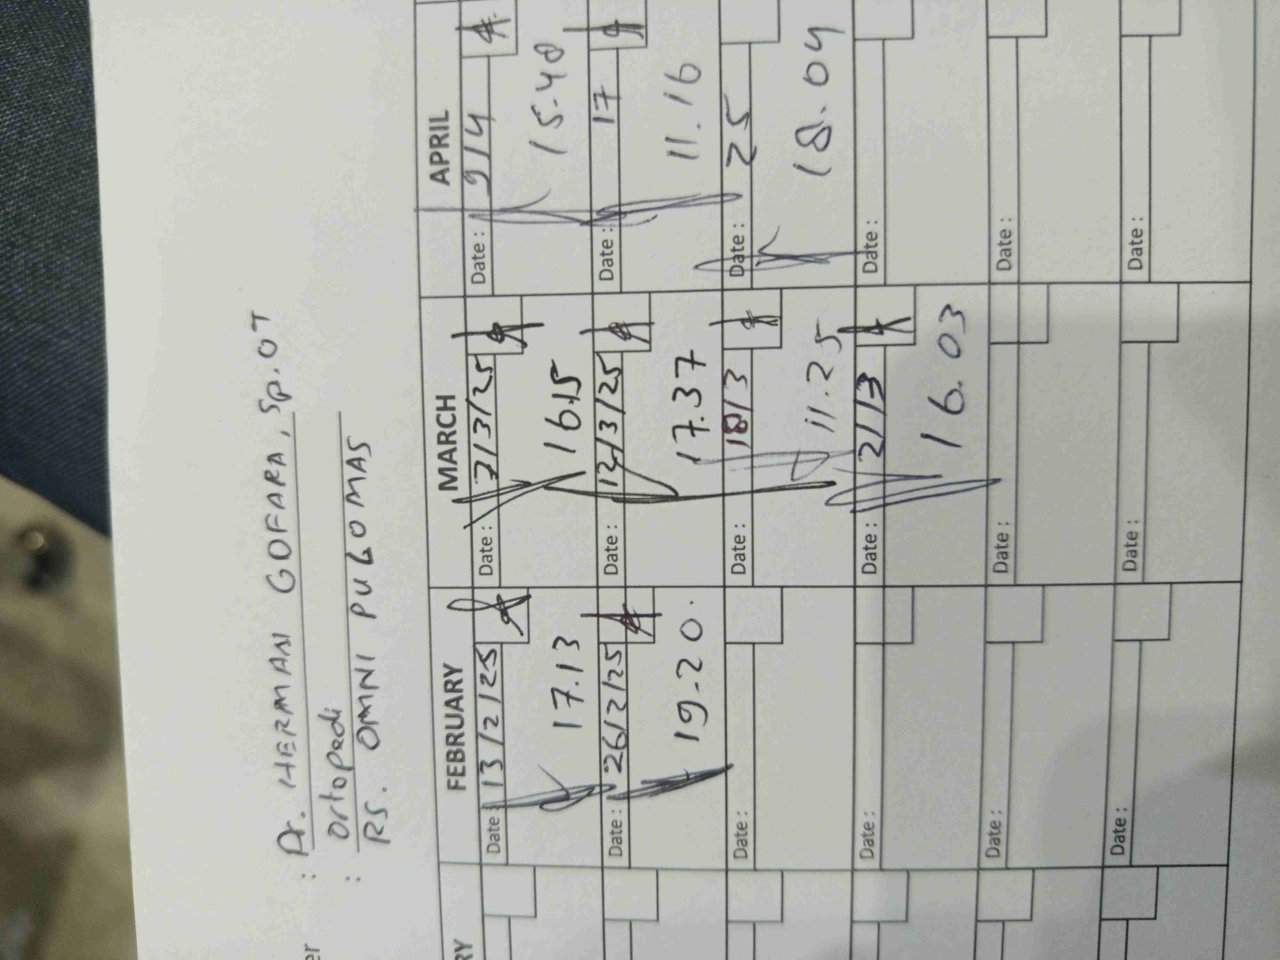 er : Dr. HERMAN GOFARA, Sp.OT
Ortopedi
: RS. OMNI PULOMAS
RY FEBRUARY MARCH APRIL
Date : 13/2/25 Date : 7/3/25 Date : 9/4
17.13 16.15 15-40
Date : 26/2/25 Date : 12/3/25 Date : 17
19-20. 17.37 11.16
Date : Date : 18/3 Date : 25
11.25 18.04
Date : Date : 21/3 Date :
16.03
Date : Date : Date :
Date : Date : Date :